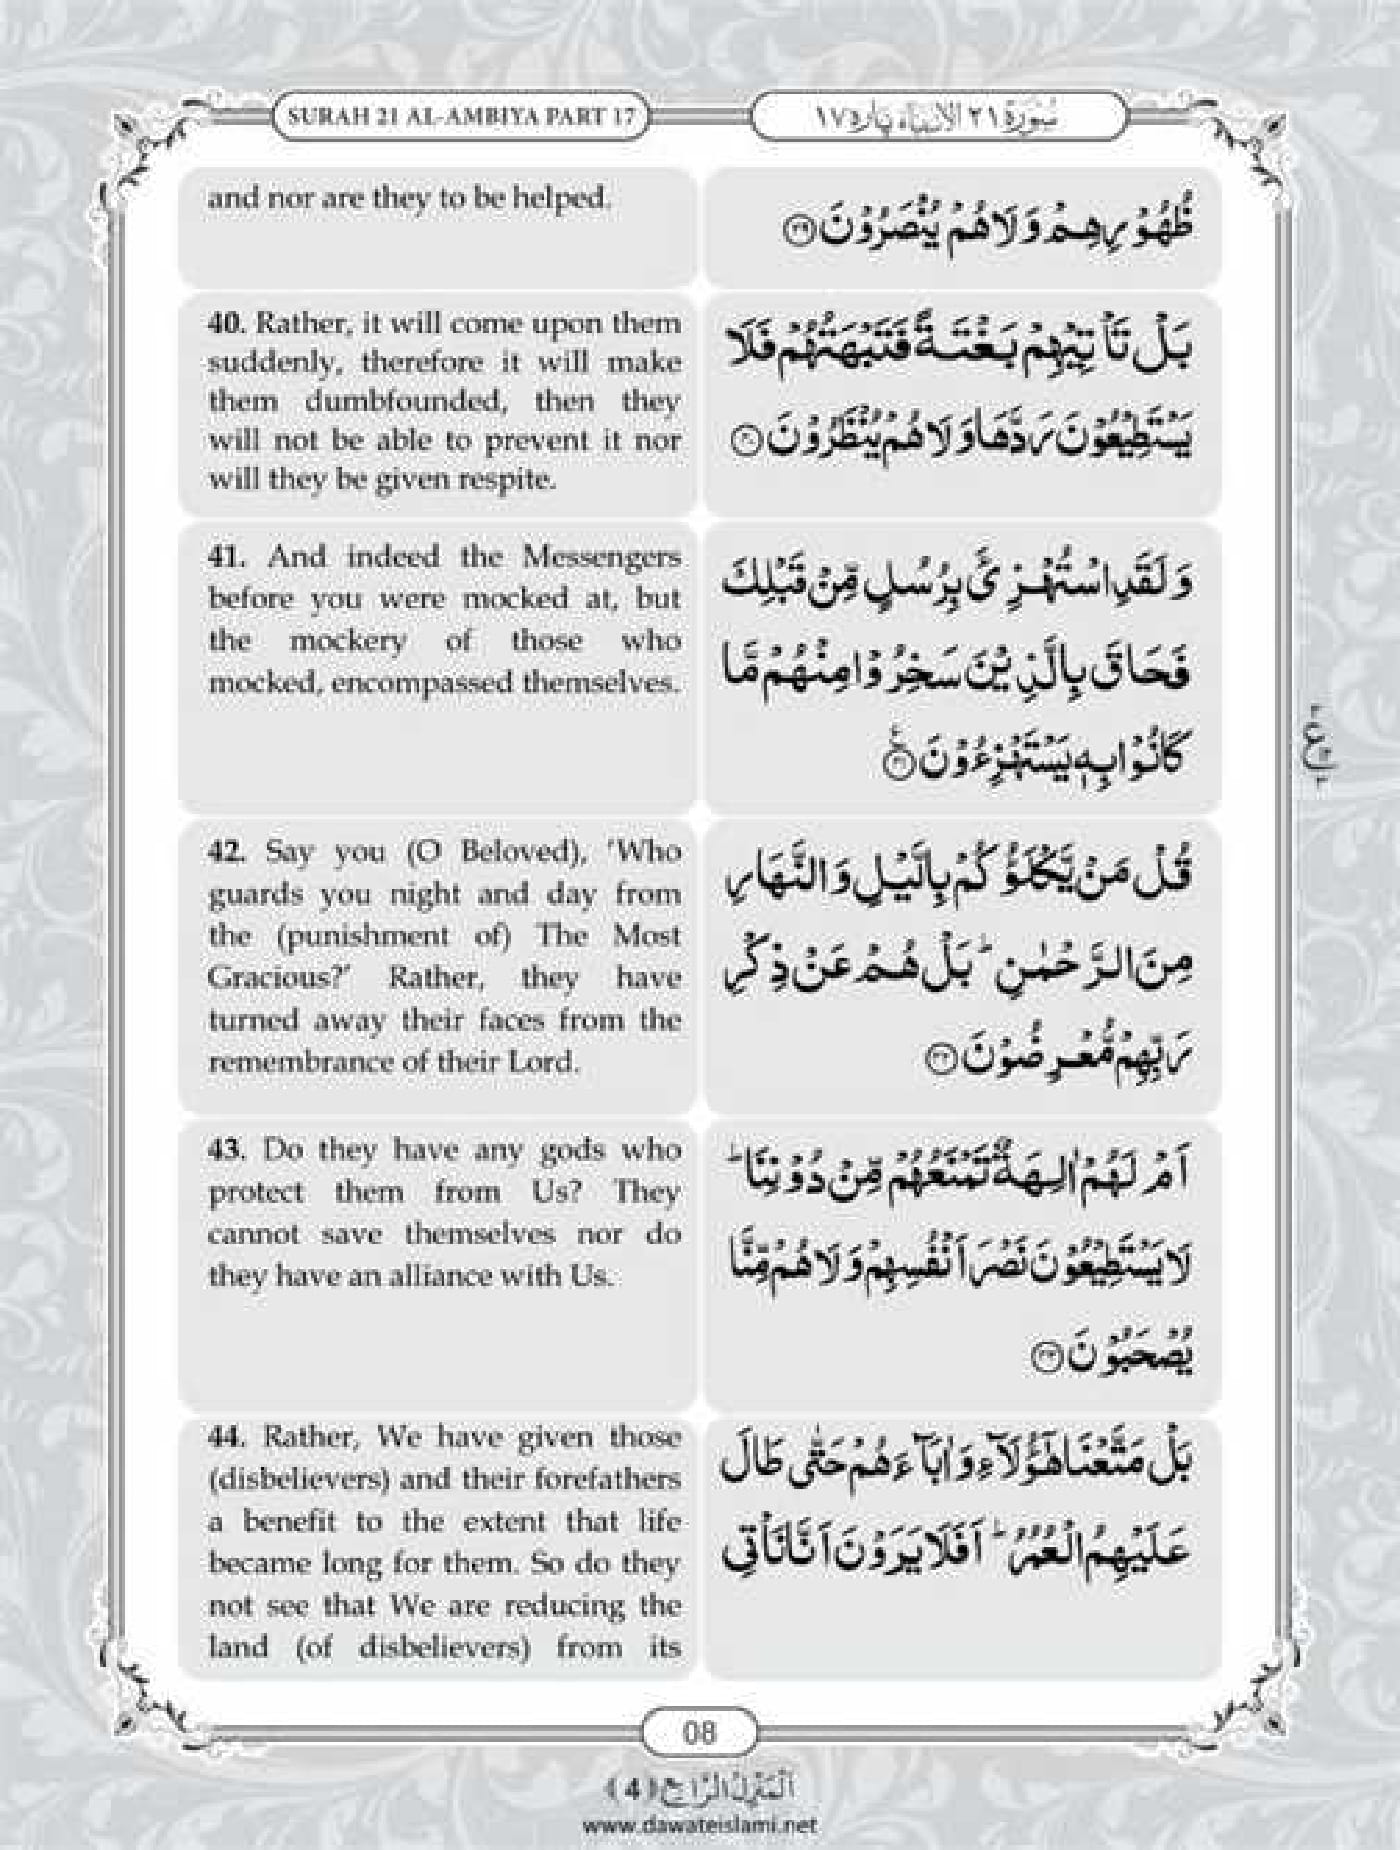 SURAH 21 AL-AMBIYA PART 17
سُوۡرَة ٢١ الۡاَنۡۢبِيَآء پارہ ١٧
and nor are they to be helped.
ظُهُوۡرِهِمۡ وَلَا هُمۡ يُنۡصَرُوۡنَ ﴿۳۹﴾
40. Rather, it will come upon them
suddenly, therefore it will make
them dumbfounded, then they
will not be able to prevent it nor
will they be given respite.
بَلۡ تَاۡتِيۡهِمۡ بَغۡتَةً فَتَبۡهَتُهُمۡ فَلَا
يَسۡتَطِيۡعُوۡنَ رَدَّهَا وَلَا هُمۡ يُنۡظَرُوۡنَ ﴿۴۰﴾
41. And indeed the Messengers
before you were mocked at, but
the mockery of those who
mocked, encompassed themselves.
وَلَقَدِ اسۡتُهۡزِئَ بِرُسُلٍ مِّنۡ قَبۡلِكَ
فَحَاقَ بِالَّذِيۡنَ سَخِرُوۡا مِنۡهُمۡ مَّا
كَانُوۡا بِهٖ يَسۡتَهۡزِءُوۡنَ ﴿۴۱﴾
42. Say you (O Beloved), ‘Who
guards you night and day from
the (punishment of) The Most
Gracious?’ Rather, they have
turned away their faces from the
remembrance of their Lord.
قُلۡ مَنۡ يَّكۡلَؤُكُمۡ بِالَّيۡلِ وَالنَّهَارِ
مِنَ الرَّحۡمٰنِ ؕ بَلۡ هُمۡ عَنۡ ذِكۡرِ
رَبِّهِمۡ مُّعۡرِضُوۡنَ ﴿۴۲﴾
43. Do they have any gods who
protect them from Us? They
cannot save themselves nor do
they have an alliance with Us.
اَمۡ لَهُمۡ اٰلِهَةٌ تَمۡنَعُهُمۡ مِّنۡ دُوۡنِنَا ؕ
لَا يَسۡتَطِيۡعُوۡنَ نَصۡرَ اَنۡفُسِهِمۡ وَلَا هُمۡ مِّنَّا
يُصۡحَبُوۡنَ ﴿۴۳﴾
44. Rather, We have given those
(disbelievers) and their forefathers
a benefit to the extent that life
became long for them. So do they
not see that We are reducing the
land (of disbelievers) from its
بَلۡ مَتَّعۡنَا هٰٓؤُلَآءِ وَاٰبَآءَهُمۡ حَتّٰى طَالَ
عَلَيۡهِمُ الۡعُمُرُ ؕ اَفَلَا يَرَوۡنَ اَنَّا نَاۡتِى
08
اَلۡمَنۡزِلُ الرَّابِع ﴿4﴾
www.dawateislami.net